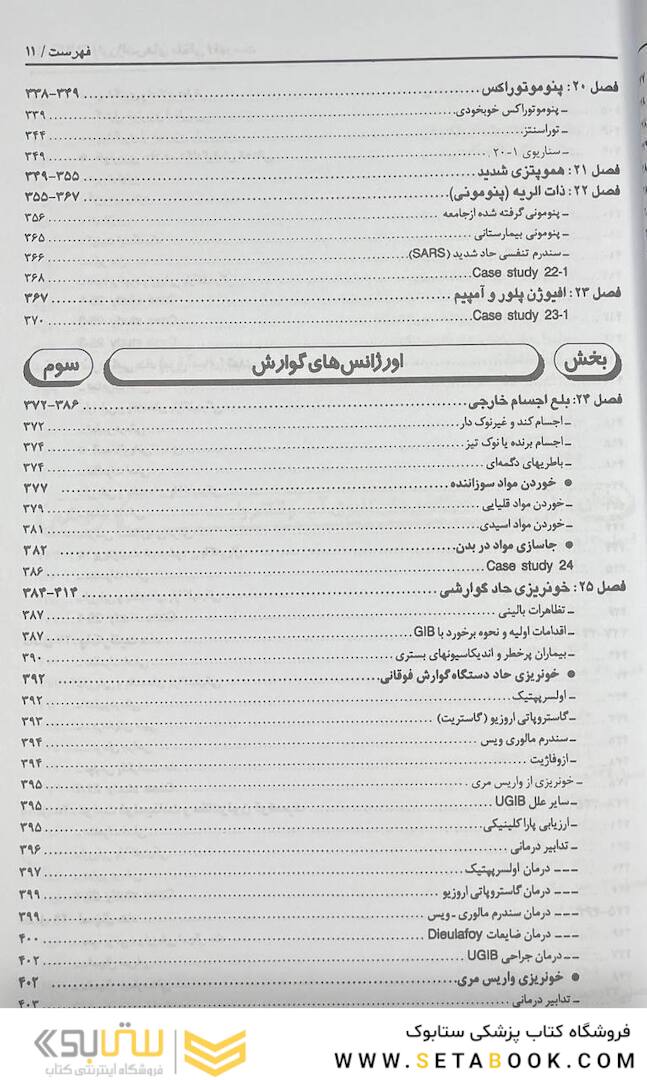 فهرست / ۱۱
فصل ۲۰: پنوموتوراکس ۳۳۸-۳۴۹
ـ پنوموتوراکس خوبخودی ۳۳۹
ـ توراسنتز ۳۴۴
ـ سناریوی ۱-۲۰ ۳۴۹
فصل ۲۱: هموپتزی شدید ۳۴۹-۳۵۵
فصل ۲۲: ذات الریه (پنومونی) ۳۵۵-۳۶۷
ـ پنومونی گرفته شده ازجامعه ۳۵۶
ـ پنومونی بیمارستانی ۳۶۵
ـ سندرم تنفسی حاد شدید (SARS) ۳۶۶
Case study 22-1 ۳۶۸
فصل ۲۳: افیوژن پلور و آمپیم ۳۶۷
Case study 23-1 ۳۷۰
بخش اورژانس‌های گوارش سوم
فصل ۲۴: بلع اجسام خارجی ۳۷۲-۳۸۶
ـ اجسام کند و غیرنوک دار ۳۷۲
ـ اجسام برنده یا نوک تیز ۳۷۴
ـ باطریهای دگمه‌ای ۳۷۴
● خوردن مواد سوزاننده ۳۷۷
ـ خوردن مواد قلیایی ۳۷۹
ـ خوردن مواد اسیدی ۳۸۱
● جاسازی مواد در بدن ۳۸۲
Case study 24 ۳۸۶
فصل ۲۵: خونریزی حاد گوارشی ۳۸۴-۴۱۴
ـ تظاهرات بالینی ۳۸۷
ـ اقدامات اولیه و نحوه برخورد با GIB ۳۸۷
ـ بیماران پرخطر و اندیکاسیونهای بستری ۳۹۰
● خونریزی حاد دستگاه گوارش فوقانی ۳۹۲
ـ اولسرپپتیک ۳۹۲
ـ گاستروپاتی اروزیو (گاستریت) ۳۹۳
ـ سندرم مالوری ویس ۳۹۴
ـ ازوفاژیت ۳۹۴
ـ خونریزی از واریس مری ۳۹۵
ـ سایر علل UGIB ۳۹۵
ـ ارزیابی پاراکلینیکی ۳۹۵
ـ تدابیر درمانی ۳۹۶
ـ ـ ـ درمان اولسرپپتیک ۳۹۷
ـ ـ ـ درمان گاستروپاتی اروزیو ۳۹۹
ـ ـ ـ درمان سندرم مالوری ـ ویس ۳۹۹
ـ ـ ـ درمان ضایعات Dieulafoy ۴۰۰
ـ ـ درمان جراحی UGIB ۴۰۲
● خونریزی واریس مری ۴۰۲
ـ تدابیر درمانی ۴۰۳
فروشگاه کتاب پزشکی ستابوک
WWW.SETABOOK.COM
ستابوک
فروشگاه اینترنتی کتاب